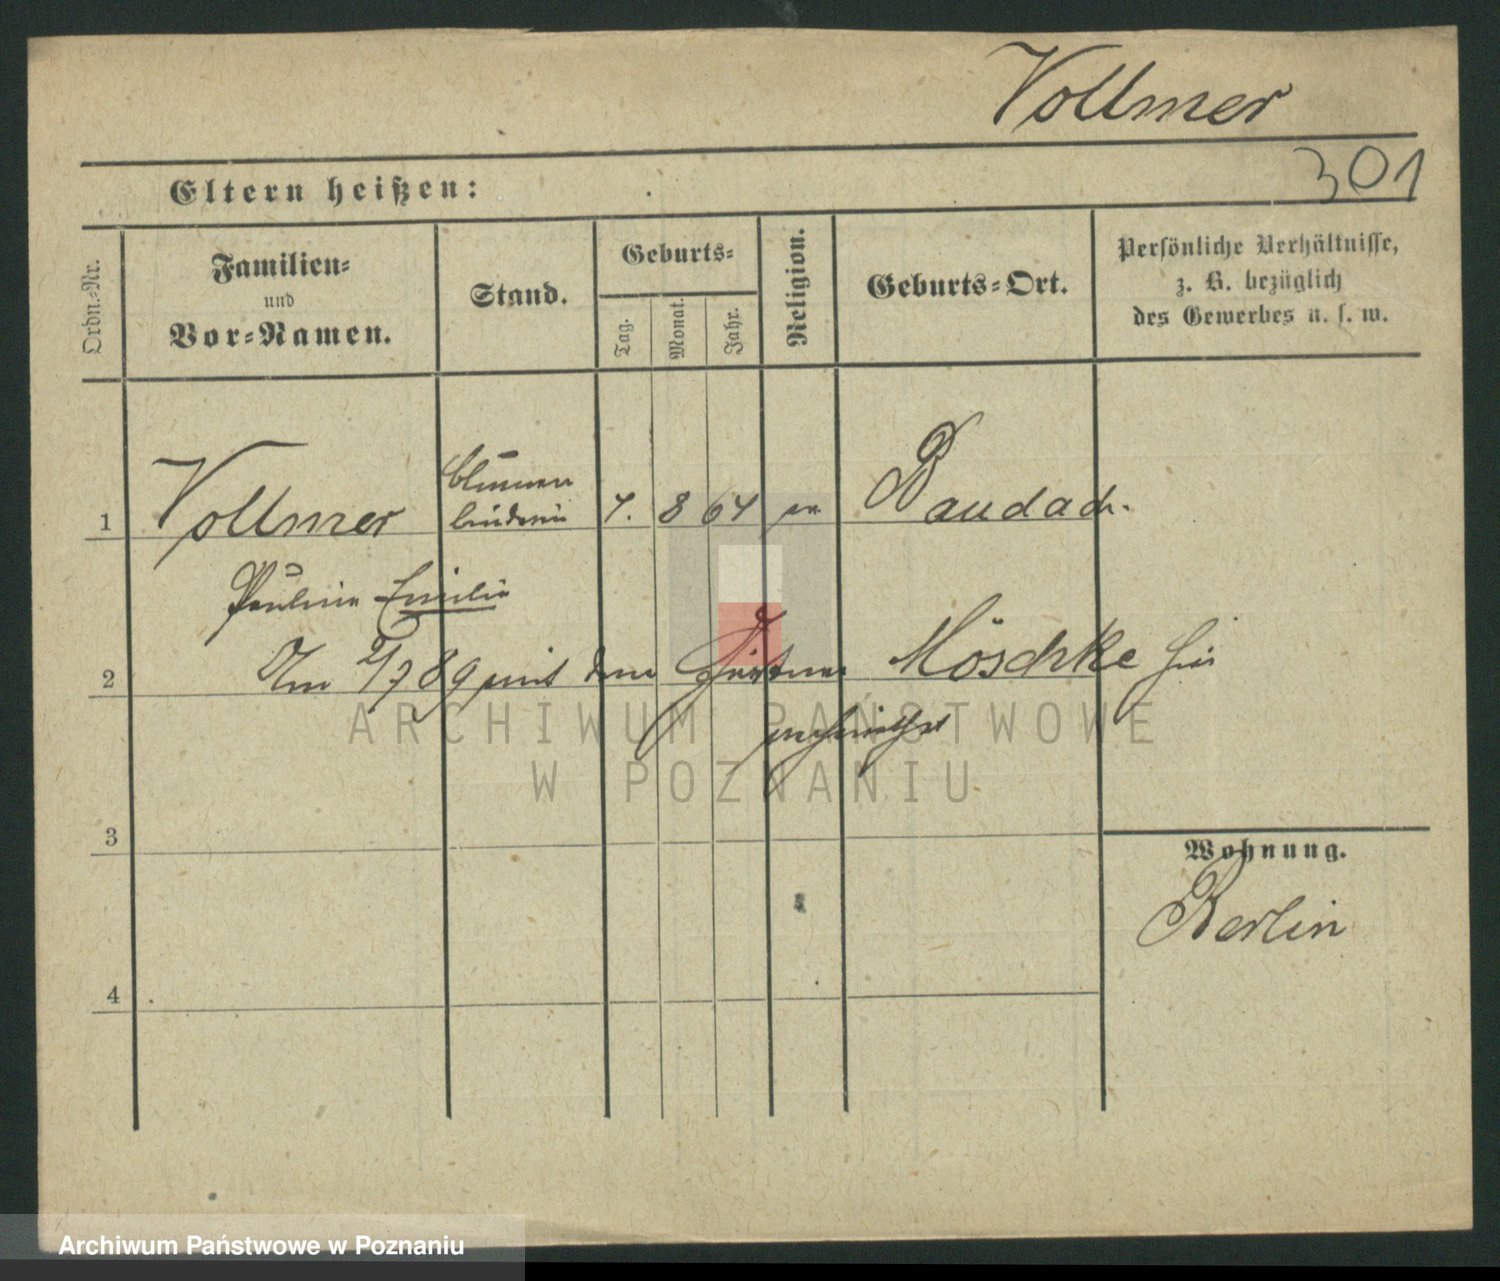 Vollmer
301
Eltern heißen:
Ordn.-Nr.
Familien-
und
Vor-Namen.
Stand.
Geburts-
Tag.
Monat.
Jahr.
Religion.
Geburts-Ort.
Persönliche Verhältnisse,
z. B. bezüglich
des Gewerbes u. s. w.
1
Vollmer
Blumen
binderin
7. 8 64
ev
Baudach.
Pauline Emilie
2
Am 2/7 89 mit dem Gärtner Möschke hier
verheirathet
ARCHIWUM PAŃSTWOWE
W POZNANIU
3
Wohnung.
Berlin
4
Archiwum Państwowe w Poznaniu